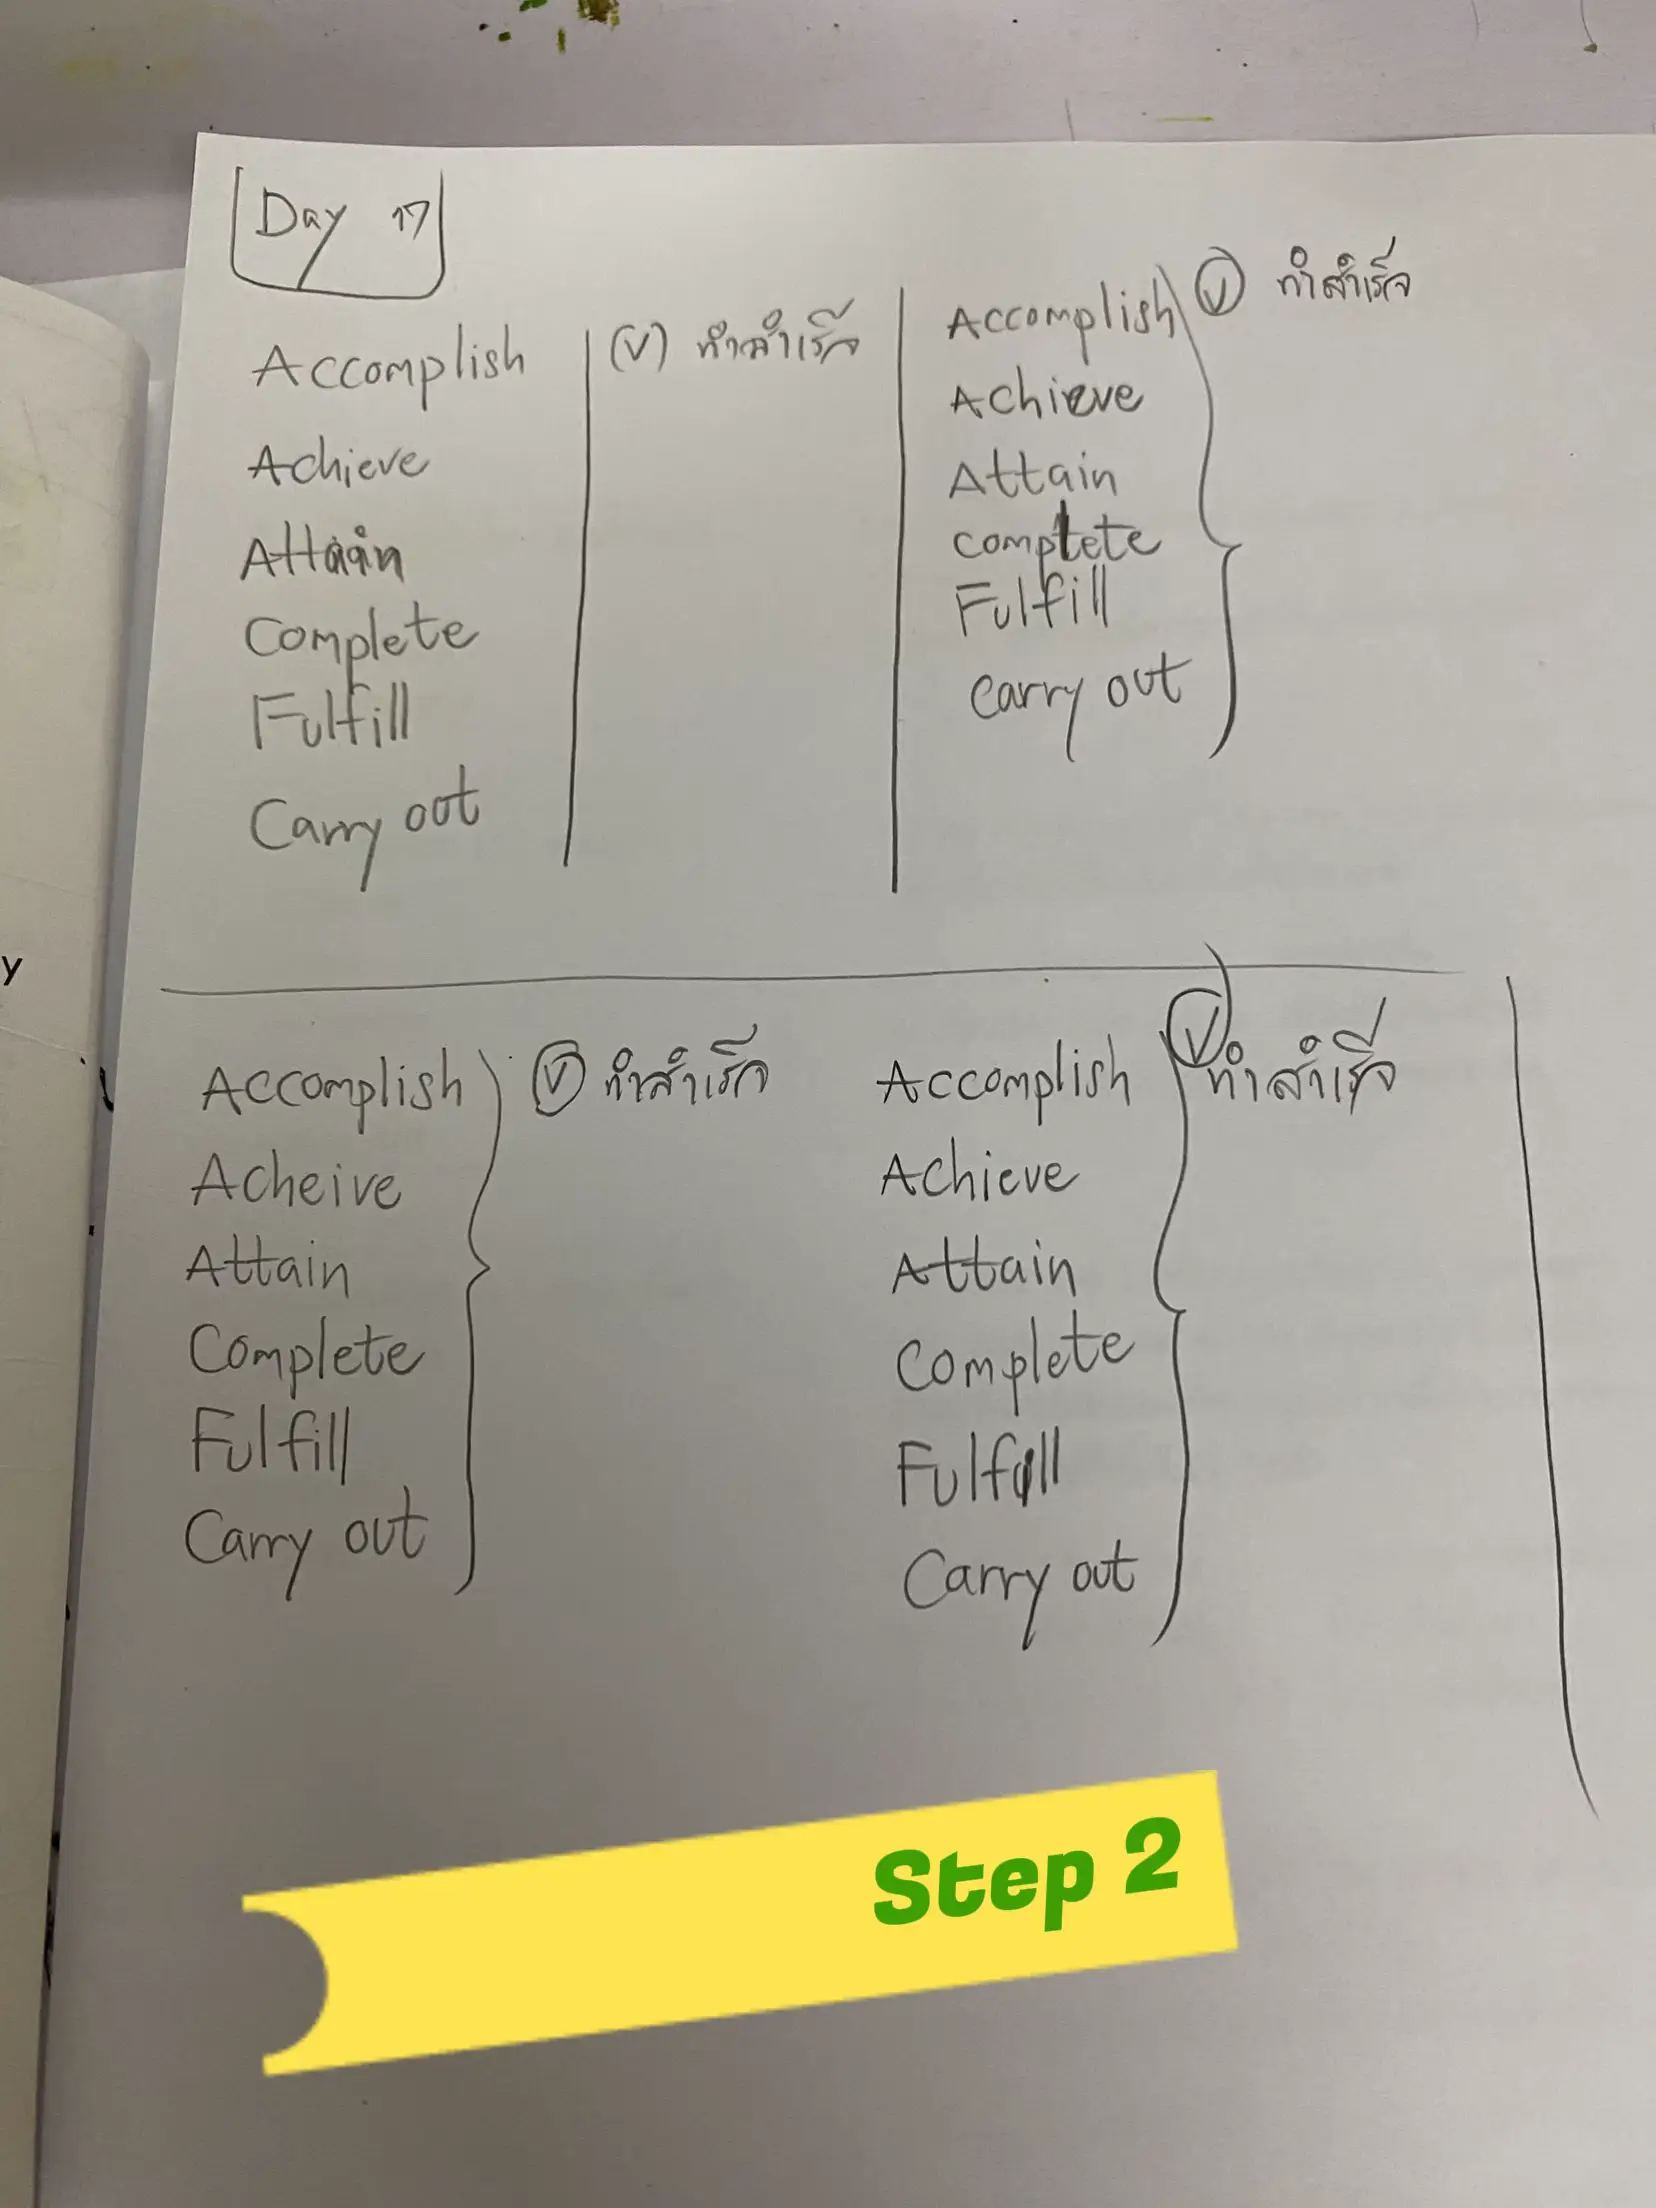 Day 17
Accomplish (v) ทำสำเร็จ
Achieve
Attain
Complete
Fulfill
Carry out
Accomplish v ทำสำเร็จ
Achieve
Attain
complete
Fulfill
Carry out
Accomplish v ทำสำเร็จ
Acheive
Attain
Complete
Fulfill
Carry out
Accomplish v ทำสำเร็จ
Achieve
Attain
Complete
Fulfill
Carry out
y
Step 2